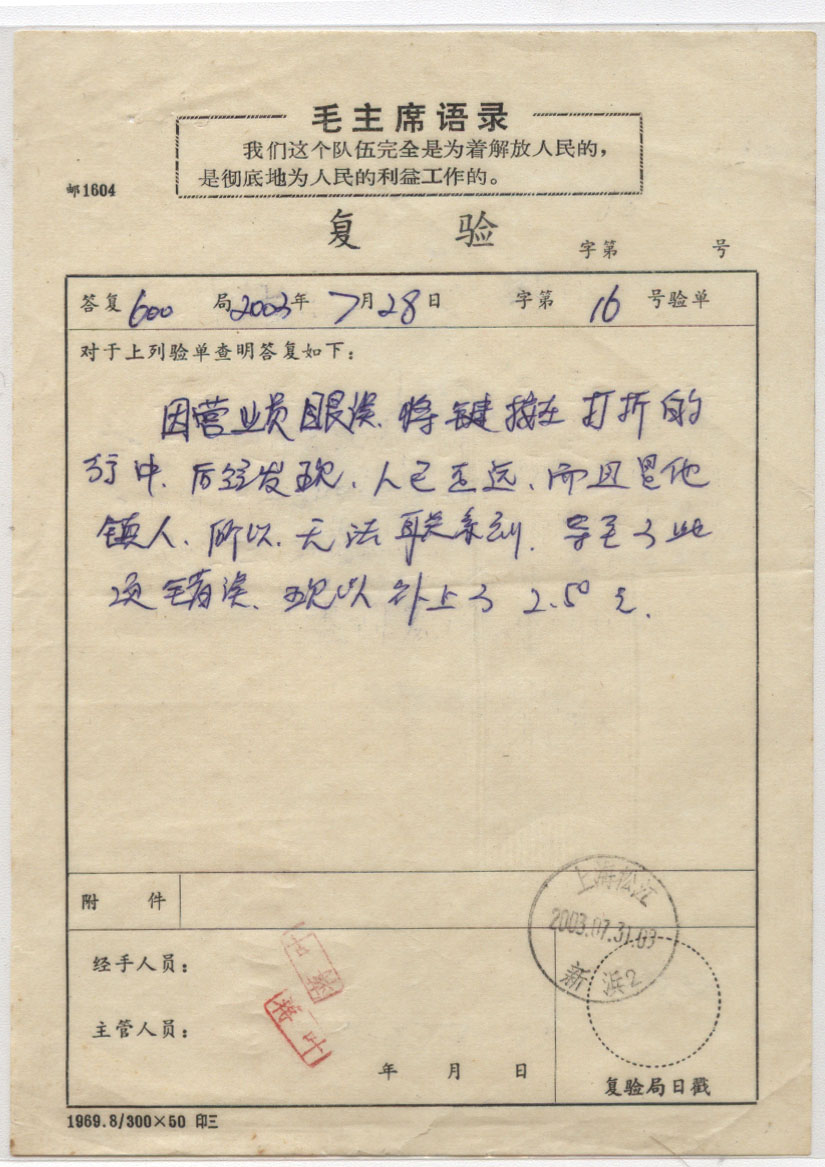 毛主席语录
我们这个队伍完全是为着解放人民的，
是彻底地为人民的利益工作的。
邮1604
复 验
字第 号
答复 600 局 2003 年 7 月 28 日 字第 16 号验单
对于上列验单查明答复如下：
因营业员眼误、将键按在打折的
行中、后经发现、人已走远、而且是他
镇人、所以、无法联系到、导至了此
项错误、现以补上了 2.50 元.
附 件
上海松江
2003.07.31.09
新浜2
经手人员：
主管人员：
年 月 日
复验局日戳
1969.8/300×50 印三